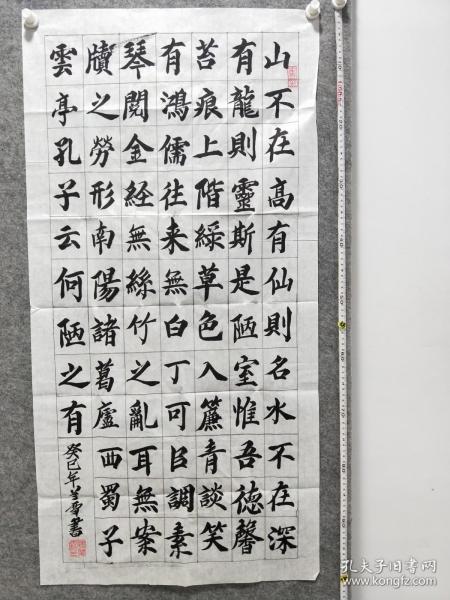 山不在高有仙則名水不在深
有龍則靈斯是陋室惟吾德馨
苔痕上階綠草色入簾青談笑
有鴻儒往来無白丁可㠯調素
琴閱金經無絲竹之亂耳無案
牘之勞形南陽諸葛廬西蜀子
雲亭孔子云何陋之有
癸巳年書
孔夫子旧书网